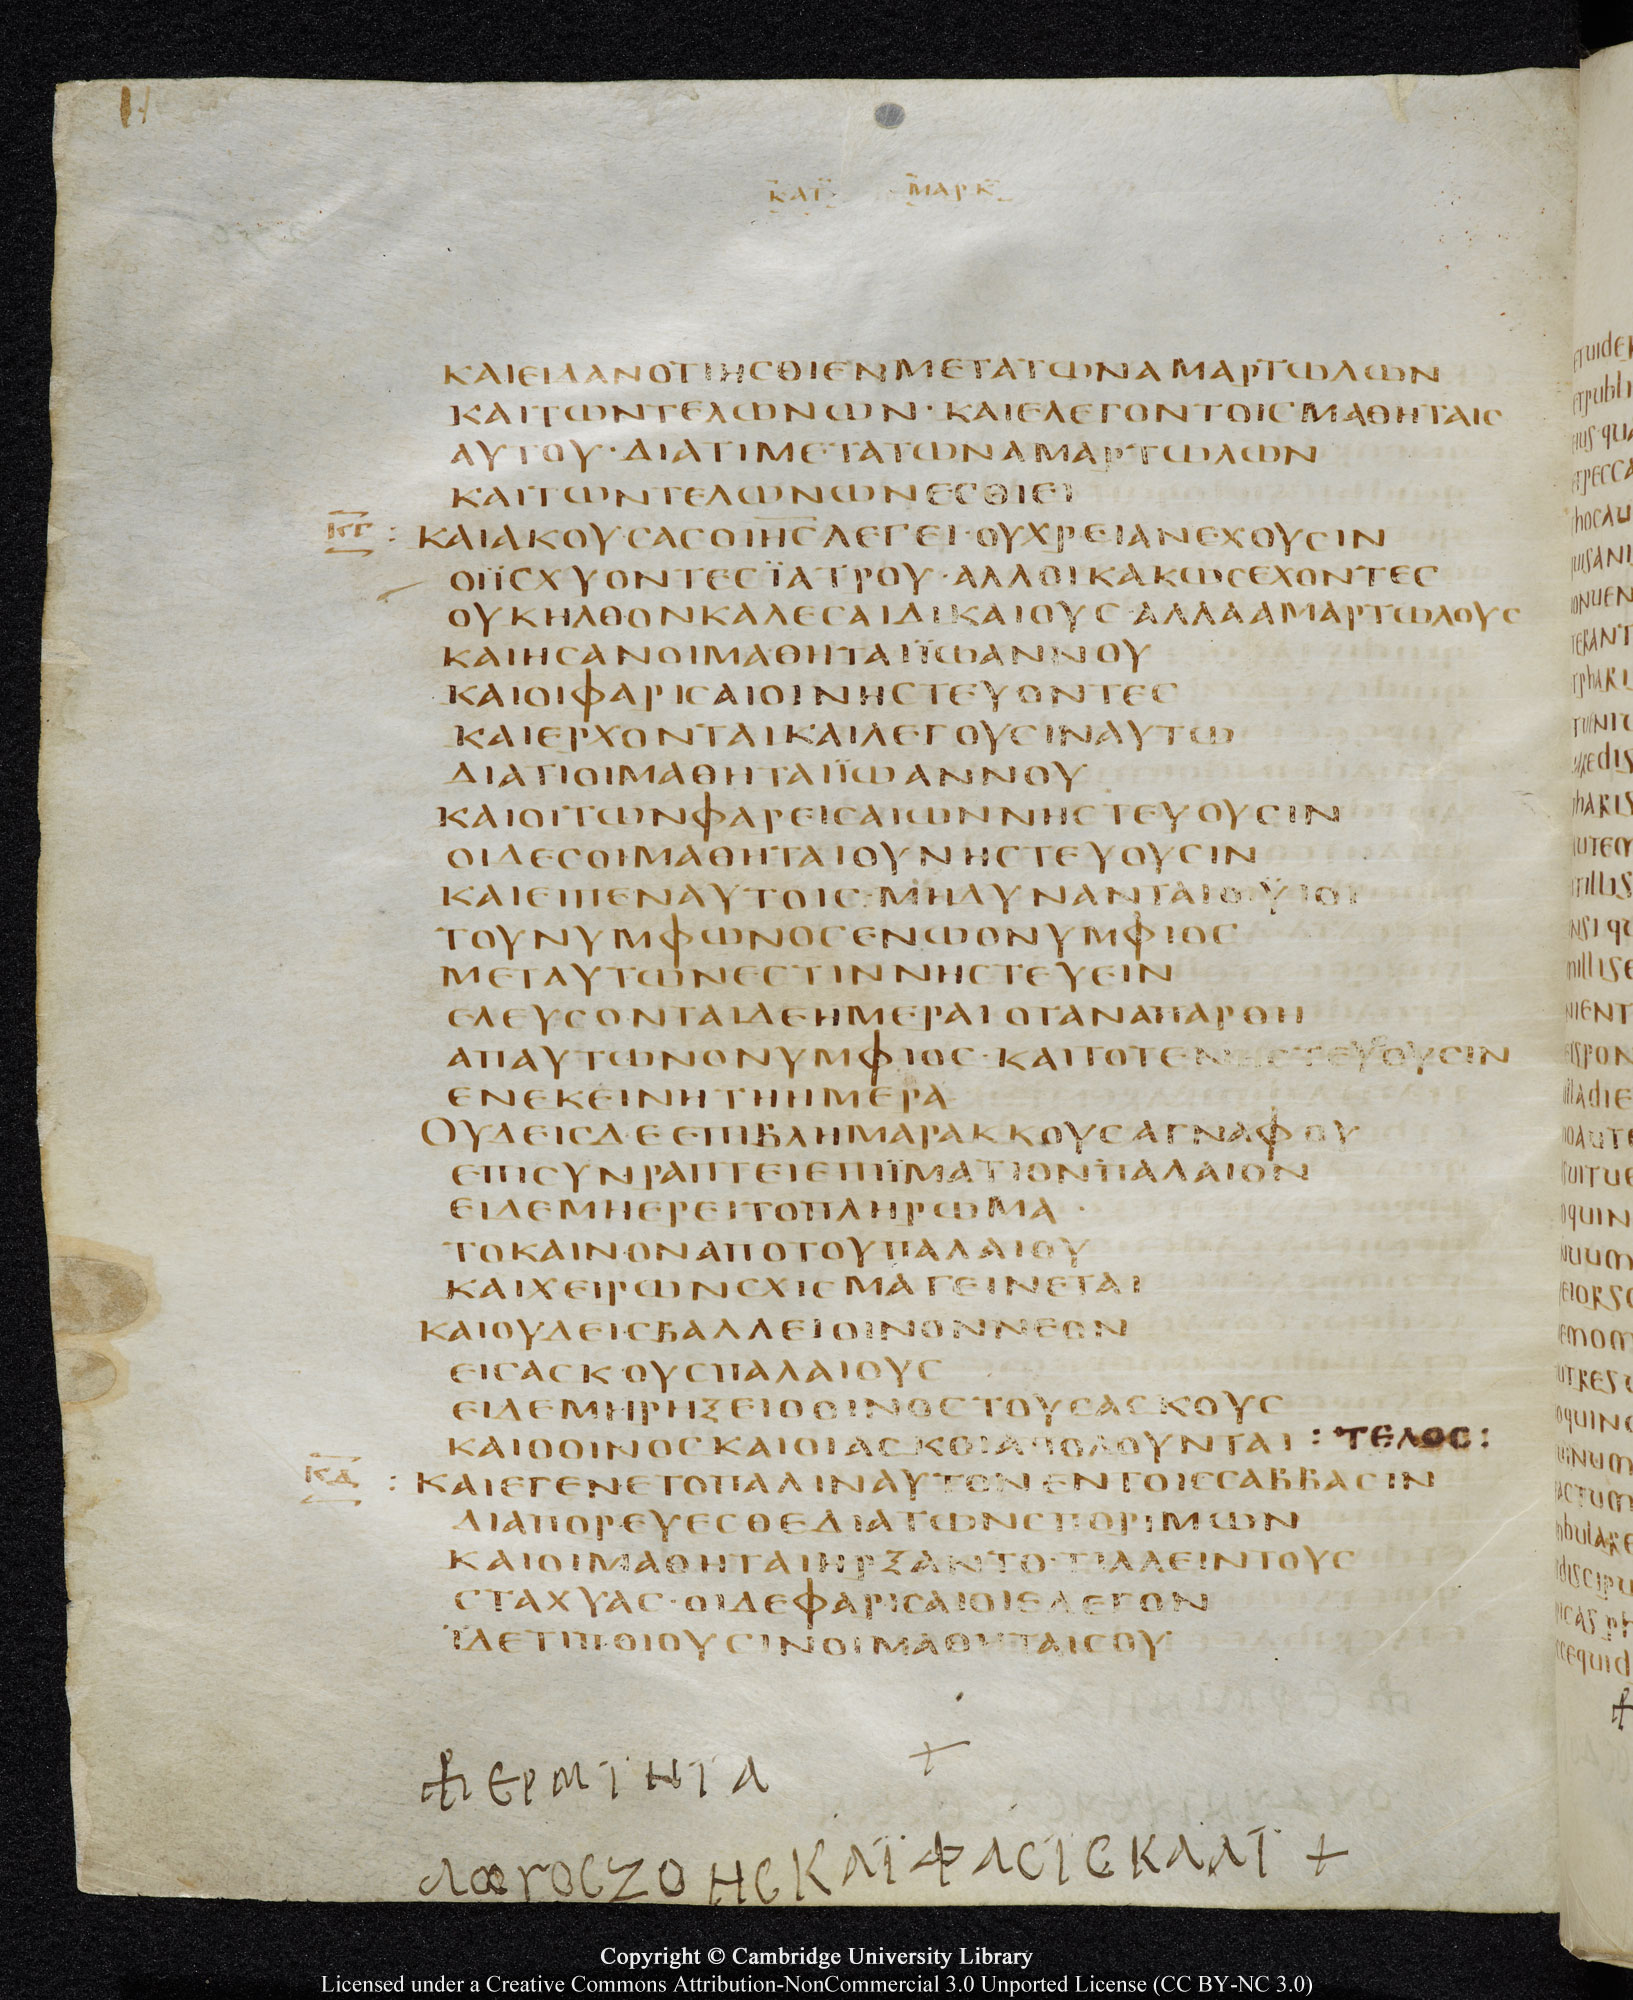 ΚΑΤ ΜΑΡΚ
ΚΑΙΕΙΔΑΝΟΤΙΗСΘΙΕΝΜΕΤΑΤωΝΑΜΑΡΤωΛωΝ
ΚΑΙΤωΝΤΕΛωΝωΝ·ΚΑΙΕΛΕΓΟΝΤΟΙСΜΑΘΗΤΑΙС
ΑΥΤΟΥ·ΔΙΑΤΙΜΕΤΑΤωΝΑΜΑΡΤωΛωΝ
ΚΑΙΤωΝΤΕΛωΝωΝΕСΘΙΕΙ
ΚΓ : ΚΑΙΑΚΟΥСΑСΟΙΗ̅С̅ΛΕΓΕΙ·ΟΥΧΡΕΙΑΝΕΧΟΥСΙΝ
ΟΙΪСΧΥΟΝΤΕСΪΑΤΡΟΥ·ΑΛΛΟΙΚΑΚωСΕΧΟΝΤΕС
ΟΥΚΗΛΘΟΝΚΑΛΕСΑΙΔΙΚΑΙΟΥС·ΑΛΛΑΑΜΑΡΤωΛΟΥС
ΚΑΙΗСΑΝΟΙΜΑΘΗΤΑΙΪωΑΝΝΟΥ
ΚΑΙΟΙΦΑΡΙСΑΙΟΙΝΗСΤΕΥΟΝΤΕС
ΚΑΙΕΡΧΟΝΤΑΙΚΑΙΛΕΓΟΥСΙΝΑΥΤω
ΔΙΑΤΙΟΙΜΑΘΗΤΑΙΪωΑΝΝΟΥ
ΚΑΙΟΙΤωΝΦΑΡΕΙСΑΙωΝΝΗСΤΕΥΟΥСΙΝ
ΟΙΔΕСΟΙΜΑΘΗΤΑΙΟΥΝΗСΤΕΥΟΥСΙΝ
ΚΑΙΕΙΠΕΝΑΥΤΟΙС·ΜΗΔΥΝΑΝΤΑΙΟΙΥΙΟΙ
ΤΟΥΝΥΜΦωΝΟСΕΝωΟΝΥΜΦΙΟС
ΜΕΤΑΥΤωΝΕСΤΙΝΝΗСΤΕΥΕΙΝ
ΕΛΕΥСΟΝΤΑΙΔΕΗΜΕΡΑΙΟΤΑΝΑΠΑΡΘΗ
ΑΠΑΥΤωΝΟΝΥΜΦΙΟС·ΚΑΙΤΟΤΕΝΗСΤΕΥΟΥСΙΝ
ΕΝΕΚΕΙΝΗΤΗΗΜΕΡΑ
ΟΥΔΕΙСΔΕΕΠΙΒΛΗΜΑΡΑΚΚΟΥСΑΓΝΑΦΟΥ
ΕΠΙСΥΝΡΑΠΤΕΙΕΠΙΪΜΑΤΙΟΝΠΑΛΑΙΟΝ
ΕΙΔΕΜΗΕΡΕΙΤΟΠΛΗΡωΜΑ·
ΤΟΚΑΙΝΟΝΑΠΟΤΟΥΠΑΛΑΙΟΥ
ΚΑΙΧΕΙΡωΝСΧΙСΜΑΓΕΙΝΕΤΑΙ
ΚΑΙΟΥΔΕΙСΒΑΛΛΕΙΟΙΝΟΝΝΕΟΝ
ΕΙСΑСΚΟΥСΠΑΛΑΙΟΥС
ΕΙΔΕΜΗΡΗΞΕΙΟΟΙΝΟСΤΟΥСΑСΚΟΥС
ΚΑΙΟΟΙΝΟСΚΑΙΟΙΑСΚΟΙΑΠΟΛΟΥΝΤΑΙ : ΤΕΛΟС :
ΚΔ : ΚΑΙΕΓΕΝΕΤΟΠΑΛΙΝΑΥΤΟΝΕΝΤΟΙССΑΒΒΑСΙΝ
ΔΙΑΠΟΡΕΥΕСΘΕΔΙΑΤωΝСΠΟΡΙΜωΝ
ΚΑΙΟΙΜΑΘΗΤΑΙΗΡΞΑΝΤΟ·ΤΙΛΛΕΙΝΤΟΥС
СΤΑΧΥΑС·ΟΙΔΕΦΑΡΙСΑΙΟΙΕΛΕΓΟΝ
ΪΔΕΤΙΠΟΙΟΥСΙΝΟΙΜΑΘΗΤΑΙСΟΥ
ΕΡΜΙΝΙΑ +
Copyright © Cambridge University Library
Licensed under a Creative Commons Attribution-NonCommercial 3.0 Unported License (CC BY-NC 3.0)